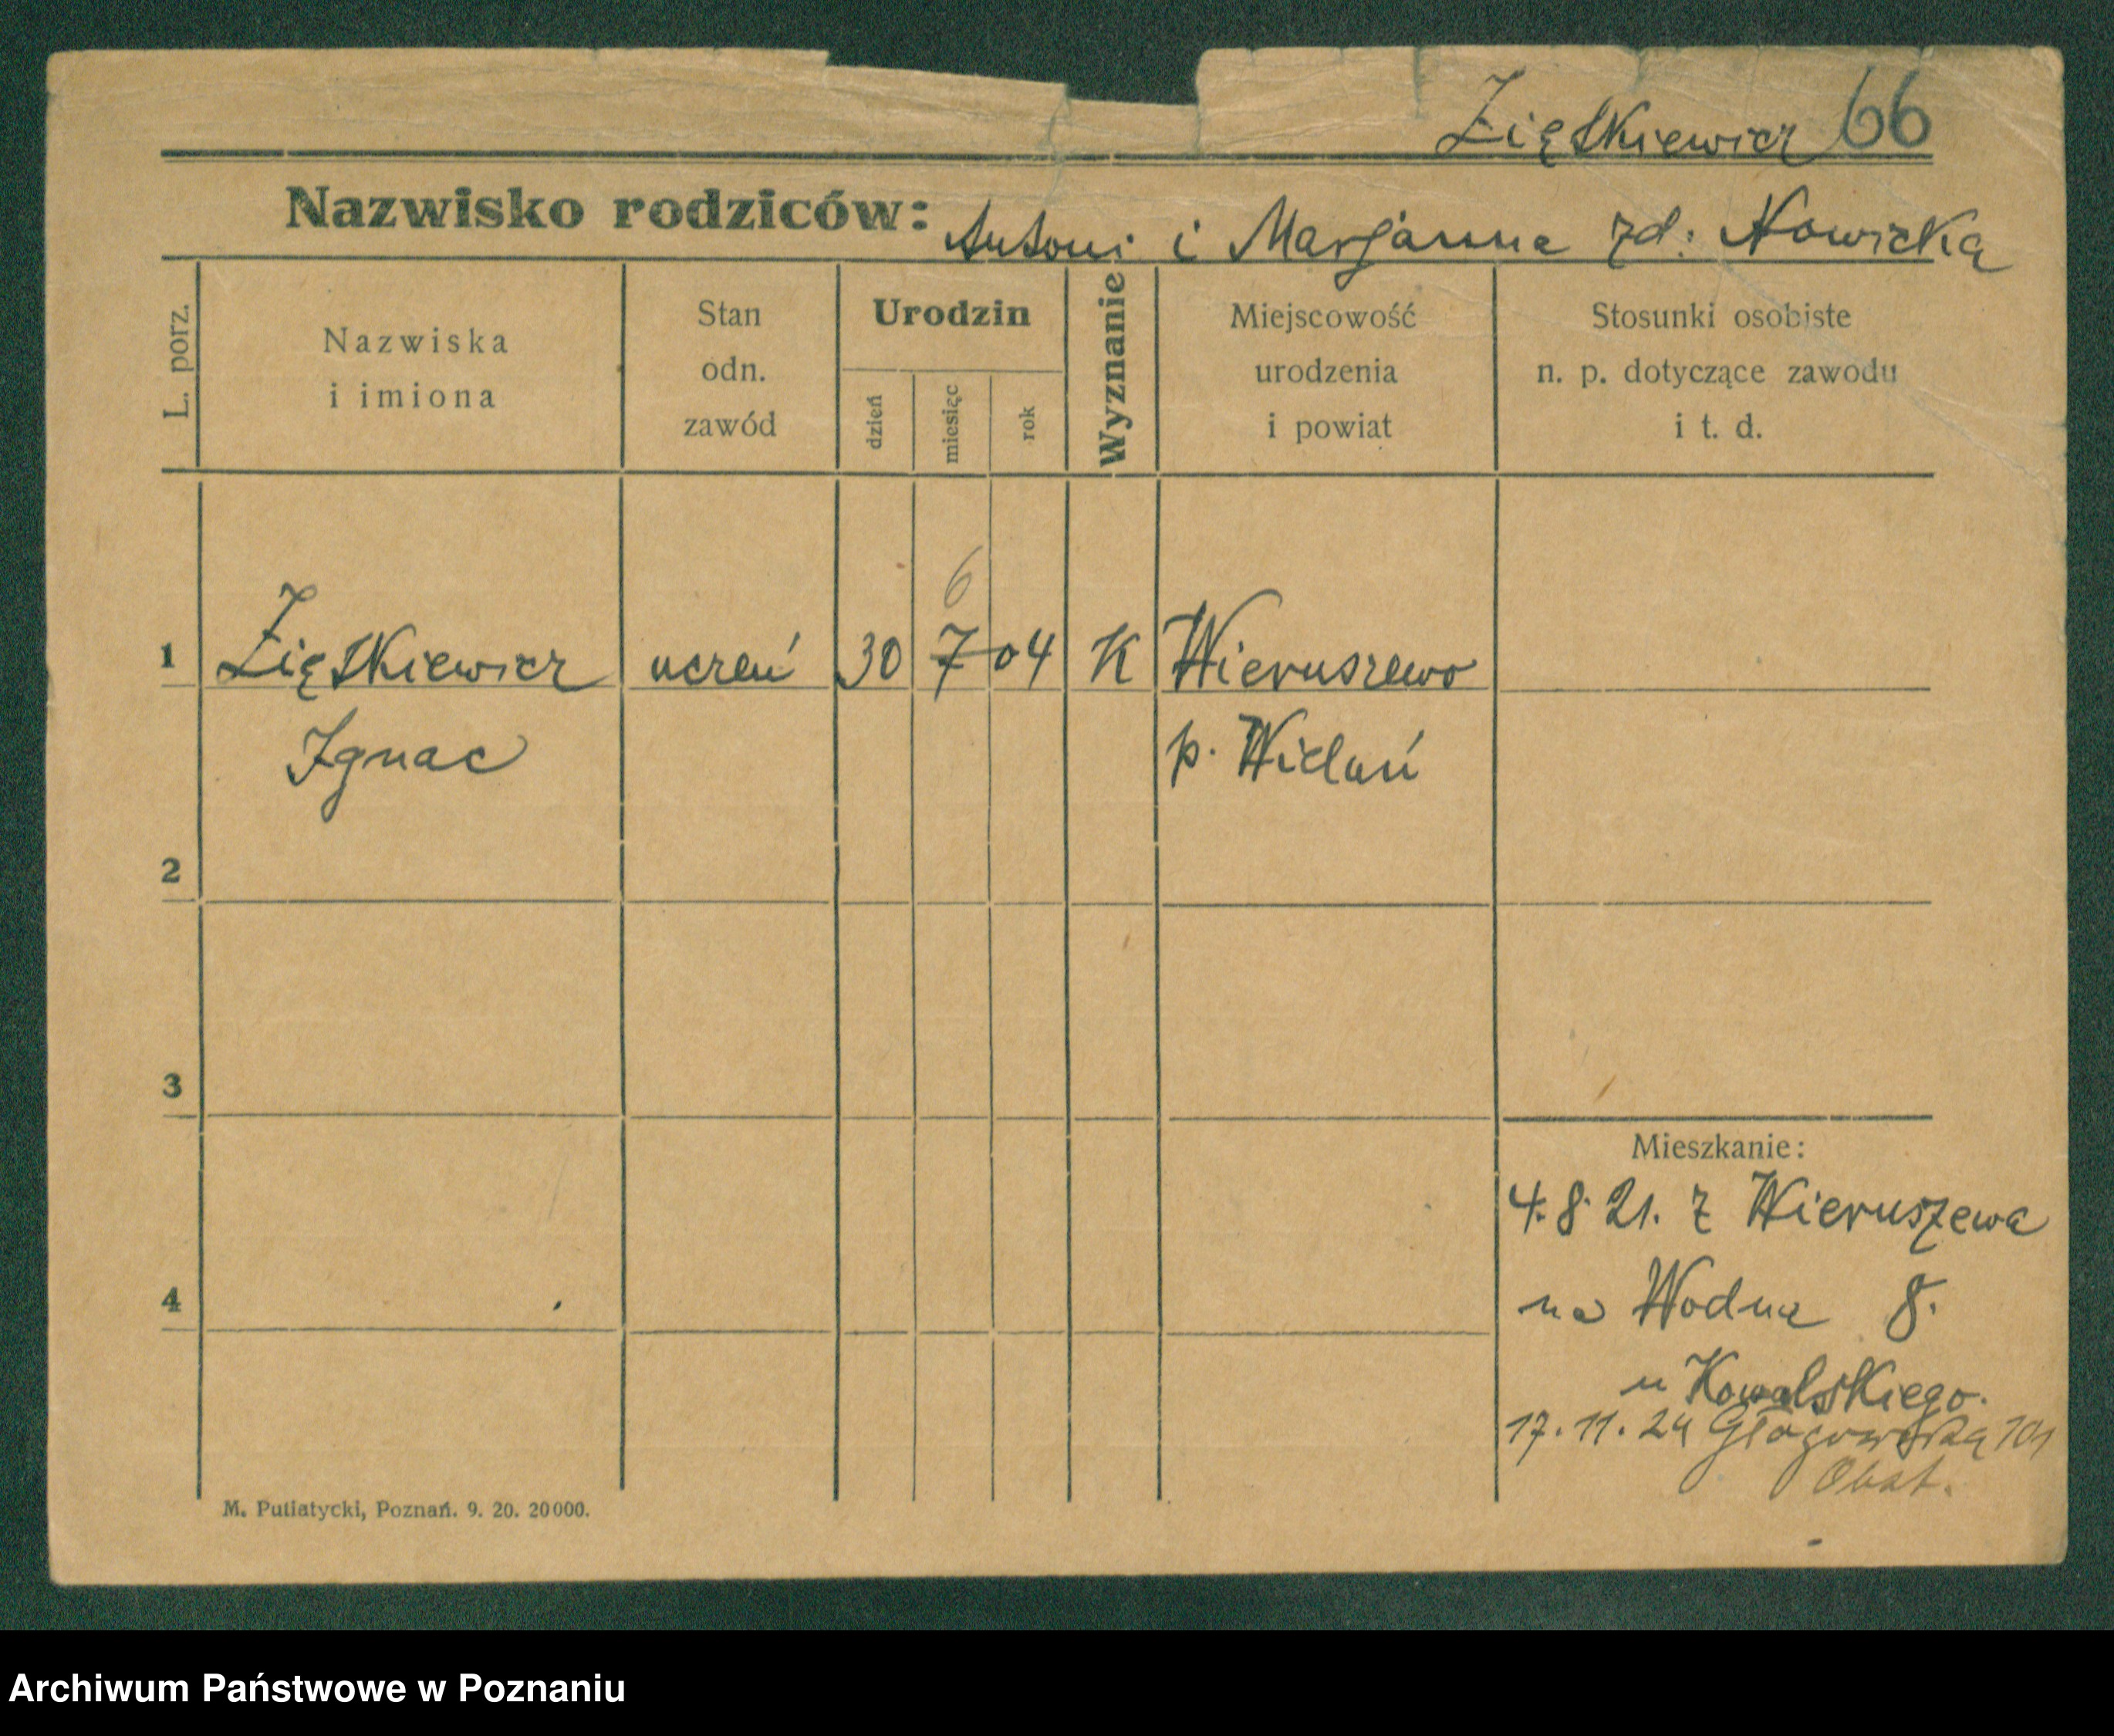 Ziętkiewicz 66
Nazwisko rodziców: Antoni i Marjanna zd: Nowicką
L. porz.
Nazwiska
i imiona
Stan
odn.
zawód
Urodzin
dzień
miesiąc
rok
Wyznanie
Miejscowość
urodzenia
i powiat
Stosunki osobiste
n. p. dotyczące zawodu
i t. d.
6
1 Ziętkiewicz uczeń 30 7 04 K Wieruszewo
Ignac p. Wieluń
2
3
Mieszkanie:
4.8.21. z Wieruszewa
4 na Wodną 8.
u Kowalskiego.
17.11.24 Głogowską 101
M. Putiatycki, Poznań. 9. 20. 20000.
Archiwum Państwowe w Poznaniu